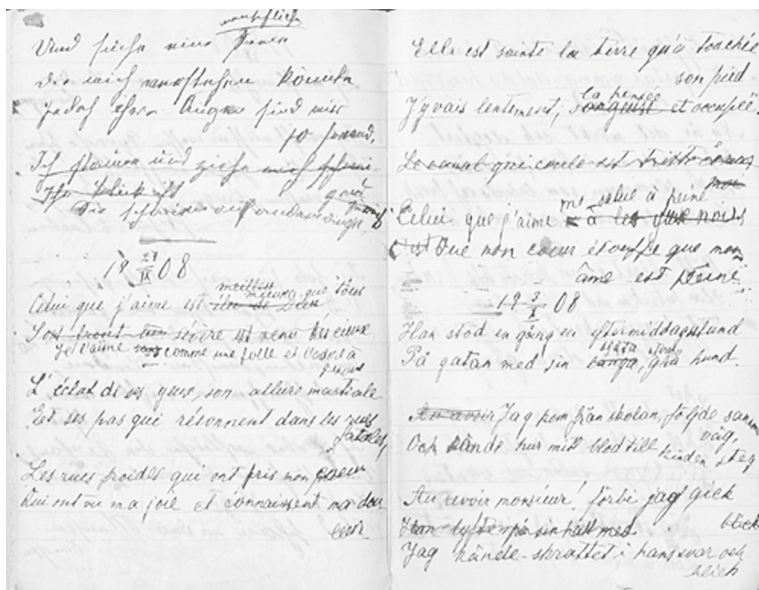 Und siehe eine Frau
die mich verstehen könnte
Jedoch ihre Augen sind mir
so fremd,
Ich staune und ziehe mich
Ihr Blick ist
Sie
19 27/IX 08
meilleur
Celui que j'aime est que tous
Son front sévère est venu des cieux
Je l'aime comme une folle et
L'éclat de ses yeux, son allure martiale
Et ses pas qui résonnent dans les rues
fatales,
Les rues froides qui ont pris mon coeur
Qui ont vu ma joie et connaissent ma dou
leur.
Elle est sainte la terre qu'a touchée
son pied
la pensée
J'y vais lentement, et occupée.
Le canal qui coule est triste
me salue à peine
Celui que j'aime à
C'est Que mon coeur étouffe que mon
âme est peine
19 3/X 08
Han stod en gång en eftermiddagstund
stora
På gatan med sin långa, grå hund.
Au revoir Jag kom från skolan, följde samma
väg,
Och kände hur mitt blod till kinden steg
Au revoir monsieur! förbi jag gick
Han lyfte på sin hatt med blick
Jag kände skrattet i hans svar och